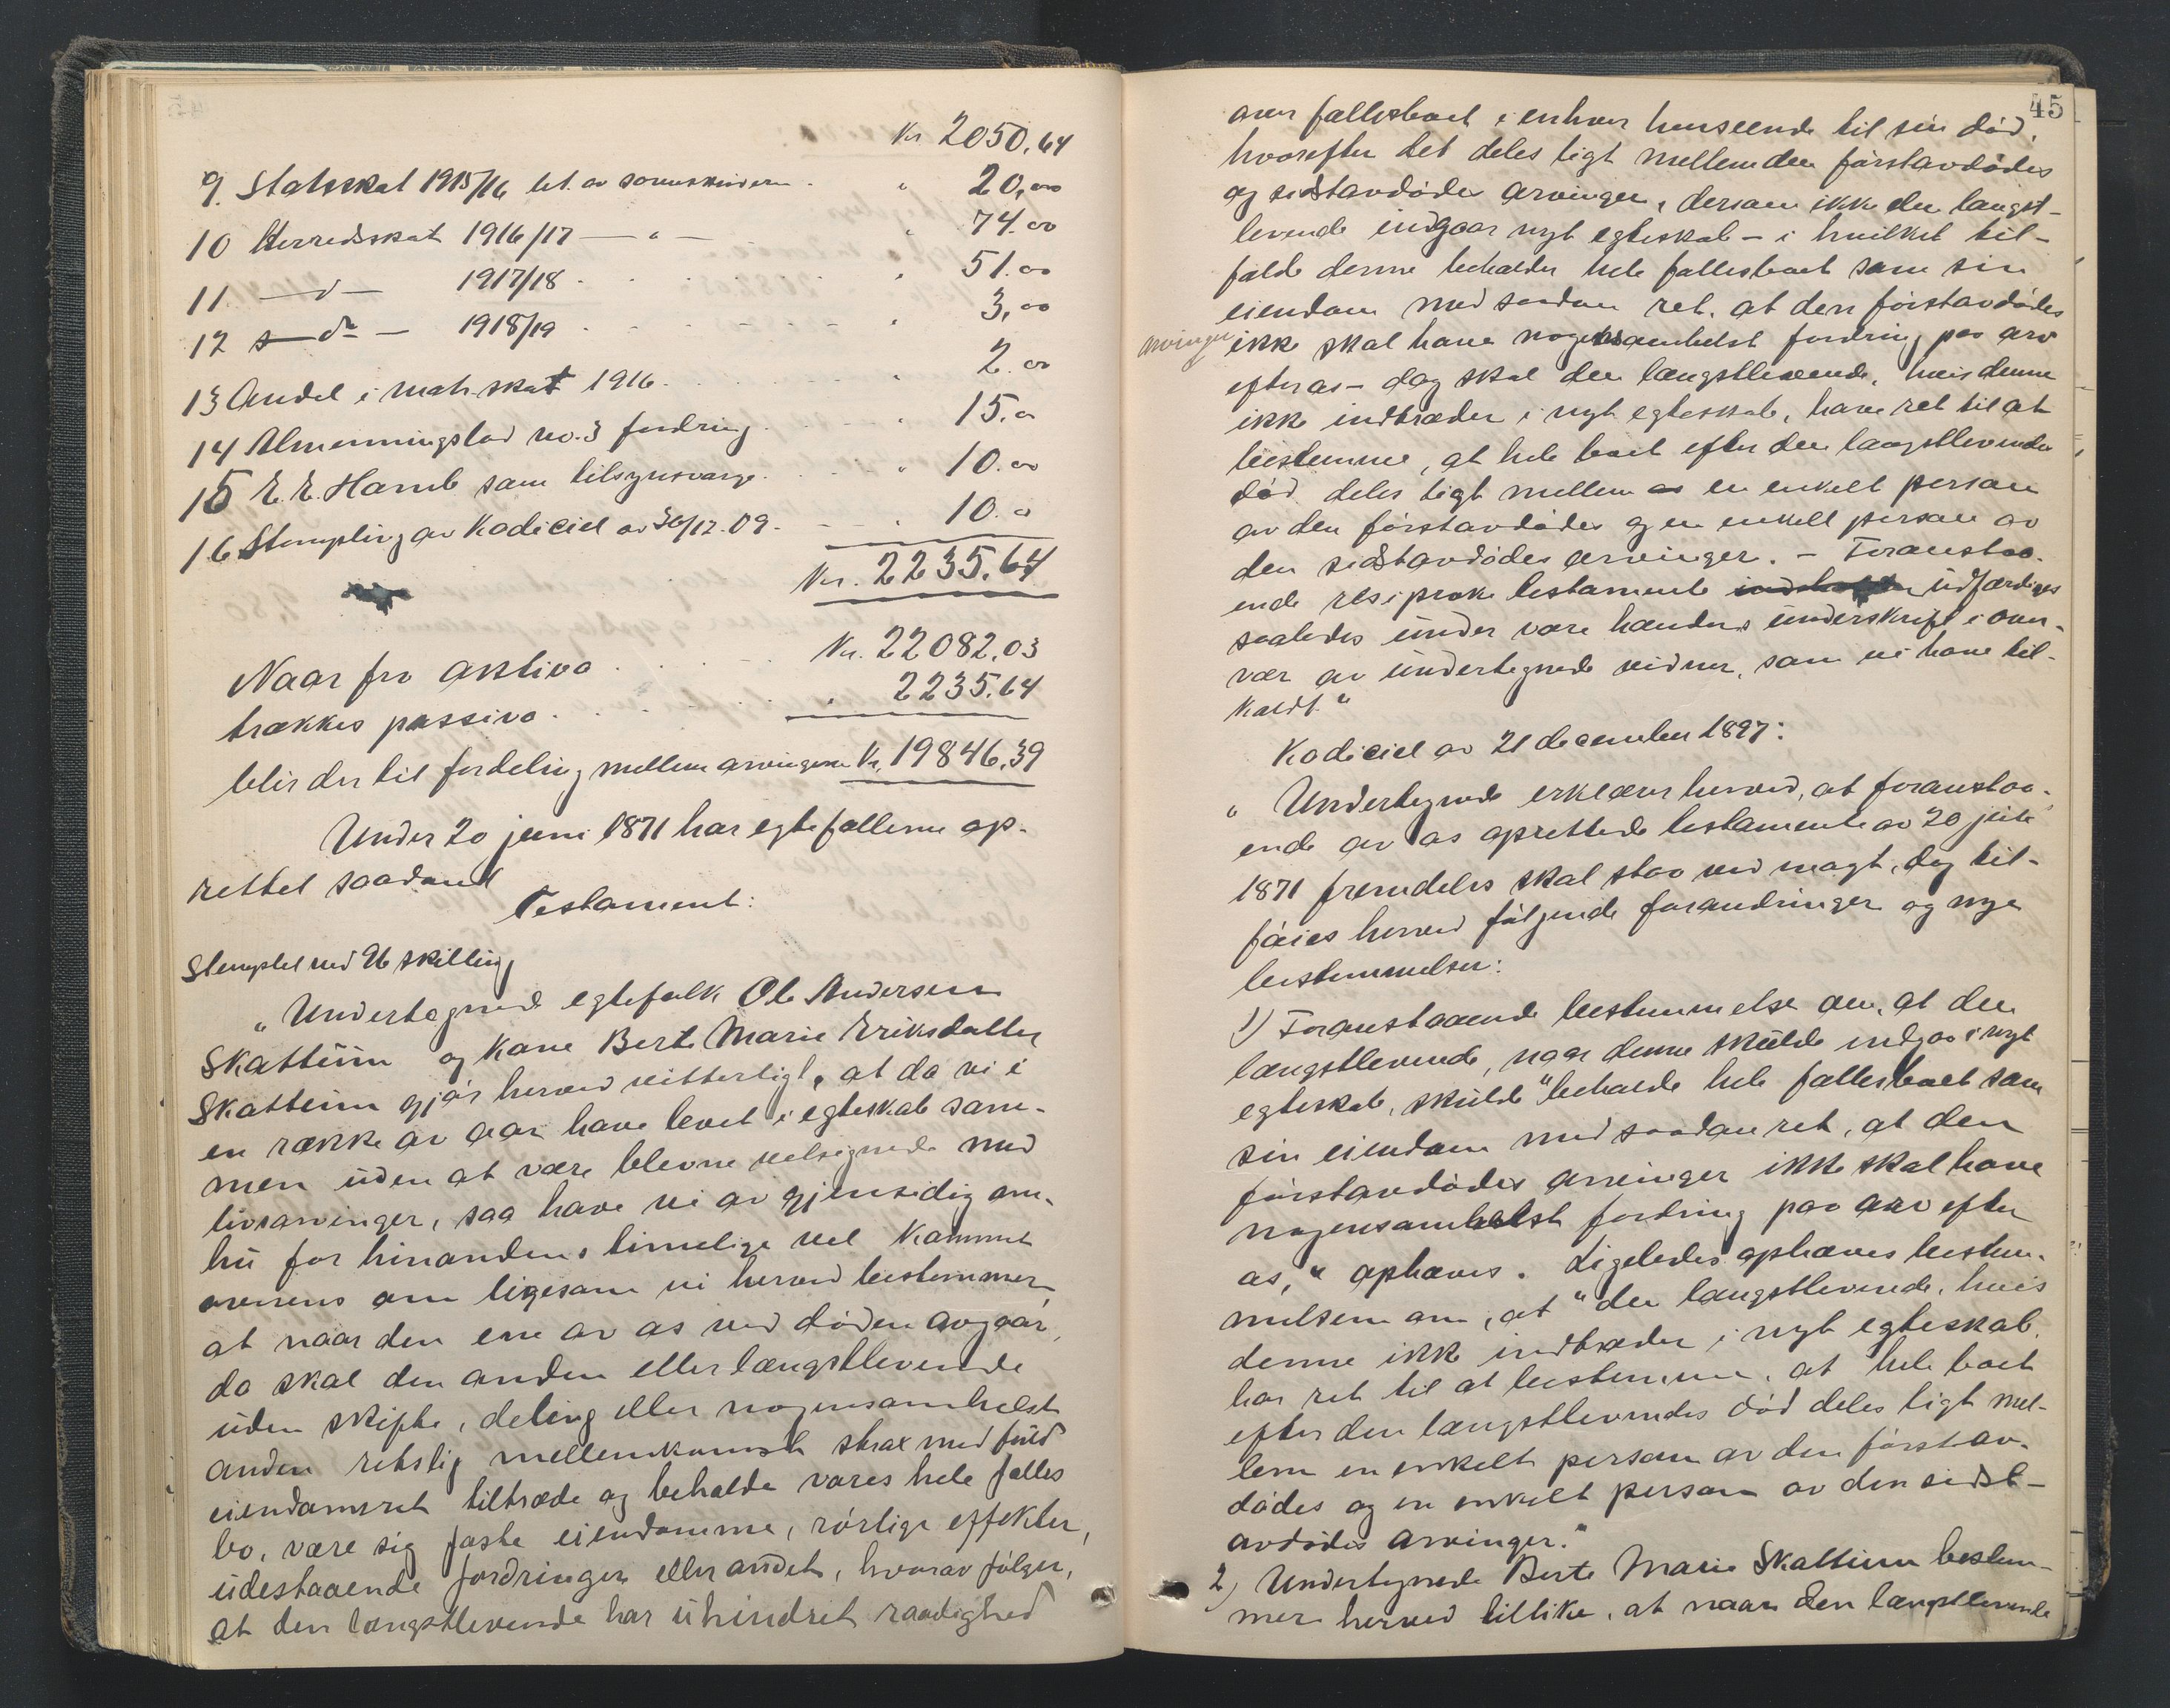 Kr 2050,64
9. Statsskat 1915/16 bet. av sameskiveren . " 20,00
10 Herredsskat 1916/17 — " — " 74.00
11 — d — 1917/18 . . . " 51.00
12 — do — 1918/19 . . . " 3,00
13 Andel i matr. skat 1916. . . . " 2.00
14 Almenningslod no. 3 fordring . . . " 15.0
15 E. E. Hamb som tilsynsverge. . . " 10.00
16 Stempling av Kodiciel av 30/12.09. — " 10.0
Kr. 2235.64
Naar fra aktiva . . . Kr. 22082.03
trækkes passiva . . . " 2235.64
blir der til fordeling mellem arvingerne Kr. 19846,39
Under 20 juni 1871 har egtefællerne op-
rettet saadant
Testament:
Stemplet med 96 skilling
" Undertegnede egtefolk Ole Andersen
Skattüm og Kone Berte Marie Eriksdatter
Skattüm gjör herved vitterligt, at da vi i
en række av aar have levet i egteskab sam-
men uden at være blevne velsignede med
livsarvinger, saa have vi av gjensidig om-
hu for hinandens timelige vel kommet
overens om ligesom vi herved bestemmer,
at naar den ene av os ved döden avgaar,
da skal den anden eller længstlevende
uden skifte, deling eller nogensomhelst
anden retslig mellemkomst strax med fuld
eiendomsret tiltræde og beholde vores hele fælles
bo, være sig faste eiendomme, rörlige effekter,
udestaaende fordringer eller andet, hvorav fölger,
at den længstlevende har uhindret raadighed
45
over fællesboet i enhver henseende til sin död,
hvorefter det deles ligt mellem den förstavdödes
og sidstavdödes arvinger, dersom ikke den længst-
levende indgaar nyt egteskab – i hvilket til-
fælde denne beholder hele fællesboet som sin
eiendom med saadan ret, at den förstavdödes
arvinger ikke skal have nogensomhelst fordring paa arv
efter os – dog skal den længstlevende, hvis denne
ikke indtræder i nyt egteskab, have ret til at
bestemme, at hele boet efter den længstlevendes
död deles ligt mellem en enkelt person
av den förstavdödes og en enkelt person av
den sidstavdödes arvinger. – Foranstaa-
ende resiproke testamente udfærdiges
saaledes under vore hænders underskrift i over-
vær av undertegnede vidner, som vi have til-
kaldt."
Kodiciel av 21 december 1897:
" Undertegnede erklærer herved, at foranstaa-
ende av os oprettede testamente av 20 juli
1871 fremdeles skal staa ved magt, dog til-
föies herved fölgende forandringer og nye
bestemmelser:
1) Foranstaaende bestemmelse om, at den
længstlevende, naar denne skulde indgaa i nyt
egteskab, skulde "beholde hele fællesboet som
sin eiendom med saadan ret, at den
förstavdödes arvinger ikke skal have
nogensomhelst fordring paa arv efter
os," ophæves. Ligeledes ophæves bestem-
melsen om, at "den længstlevende, hvis
denne ikke indtræder i nyt egteskab,
har ret til at bestemme, at hele boet
efter den længstlevendes död deles ligt mel-
lem en enkelt person av den förstav-
dödes og en enkelt person av den sidst-
avdödes arvinger."
2) Undertegnede Berte Marie Skattüm bestem-
mer herved tillike, at naar den længstlevende